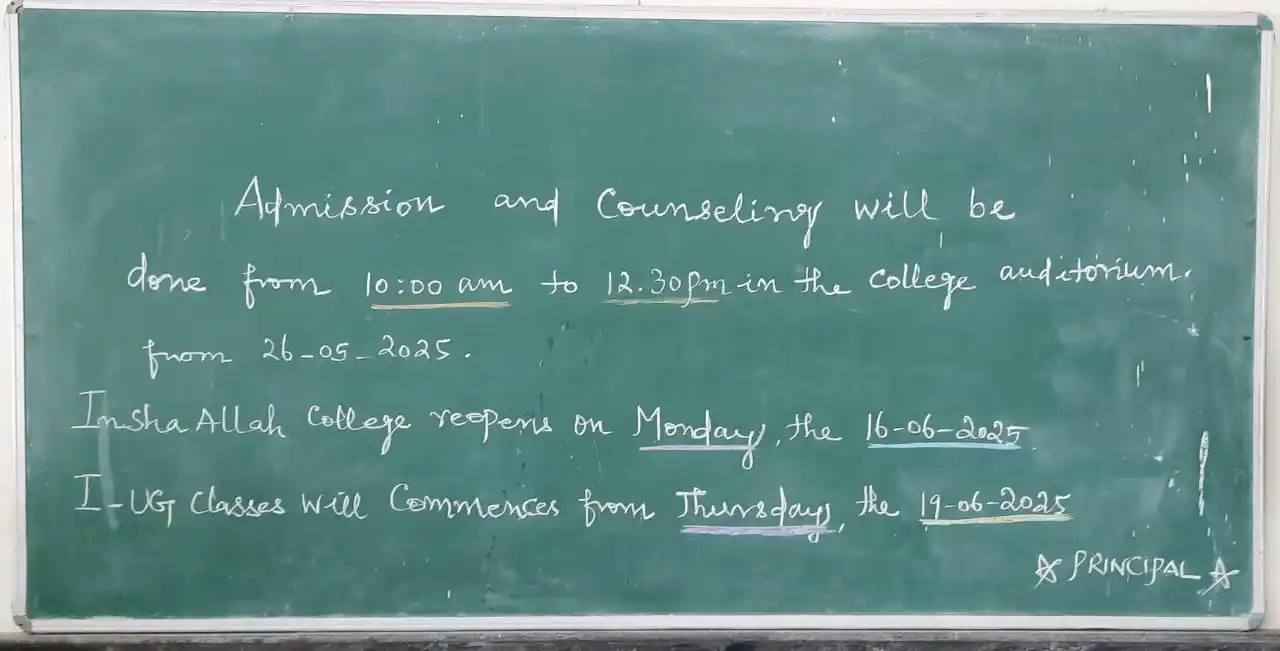 Admission and Counseling will be
done from 10:00 am to 12.30pm in the college auditorium.
from 26-05-2025.
Insha Allah College reopens on Monday, the 16-06-2025
I-UG Classes will Commences from Thursday, the 19-06-2025
☆ PRINCIPAL ☆